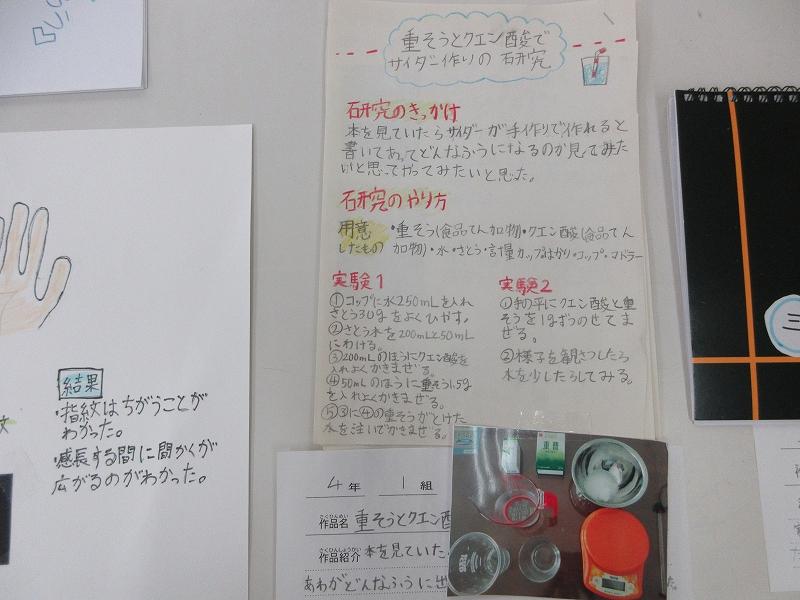 重そうとクエン酸で
サイダー作りの研究
研究のきっかけ
本を見ていたらサイダーが手作りで作れると
書いてあってどんなふうになるのか見てみた
いと思ってやってみたいと思った。
研究のやり方
用意
したもの
・重そう(食品てんか加物)・クエン酸(食品てん
加物)・水・さとう・計量カップ・はかり・コップ・マドラー
実験1
①コップに水250mLを入れ
さとう30gをよくひやす。
②さとう水を200mLと50mL
にわける。
③200mLのほうにクエン酸を
入れよくかきまぜる。
④50mLのほうに重そう1.5g
を入れよくかきまぜる。
⑤③に④の重そうがとけた
水を注いでかきまぜる。
実験2
①手の平にクエン酸と重
そうを1gずつのせてま
ぜる。
②様子を観さつしたら
水を少したらしてみる。
結果
・指紋はちがうことが
わかった。
・感長する間に間かくが
広がるのがわかった。
紋
三
4年 1組
さくひんめい
作品名 重そうとクエン酸
さくひんしょうかい
作品紹介 本を見ていた
あわがどんなふうに出
重曹